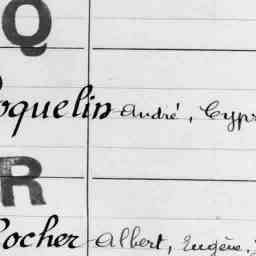 Q
oquelin André, Cypr
R
ocher Albert, Eugène,